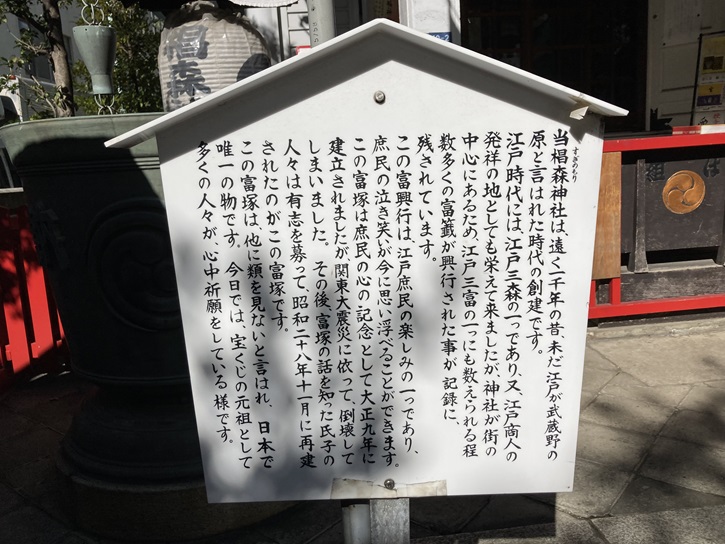 当椙森神社は、遠く一千年の昔、未だ江戸が武蔵野の
すぎのもり
原と言はれた時代の創建です。
江戸時代には、江戸三森の一つであり、又、江戸商人の
発祥の地としても栄えて来ましたが、神社が街の
中心にあるため、江戸三富の一つにも数えられる程
数多くの富籤が興行された事が記録に、
残されています。
この富興行は、江戸庶民の楽しみの一つであり、
庶民の泣き笑いが今に思い浮べることができます。
この富塚は庶民の心の記念として大正九年に
建立されましたが、関東大震災に依って、倒壊して
しまいました。その後、富塚の話を知った氏子の
人々は有志を募って、昭和二十八年十一月に再建
されたのがこの富塚です。
この富塚は、他に類を見ないと言はれ、日本で
唯一の物です。今日では、宝くじの元祖として
多くの人々が、心中祈願をしている様です。
椙森